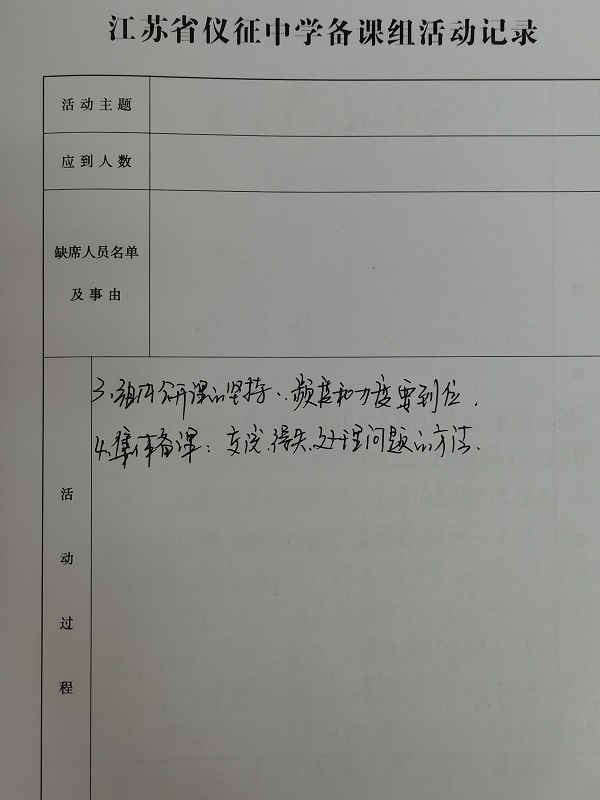 江苏省仪征中学备课组活动记录
活动主题
应到人数
缺席人员名单
及事由
活动过程
3、组内公开课的坚持、频度和力度要到位.
4.集体备课: 交流.得失.处理问题的方法.